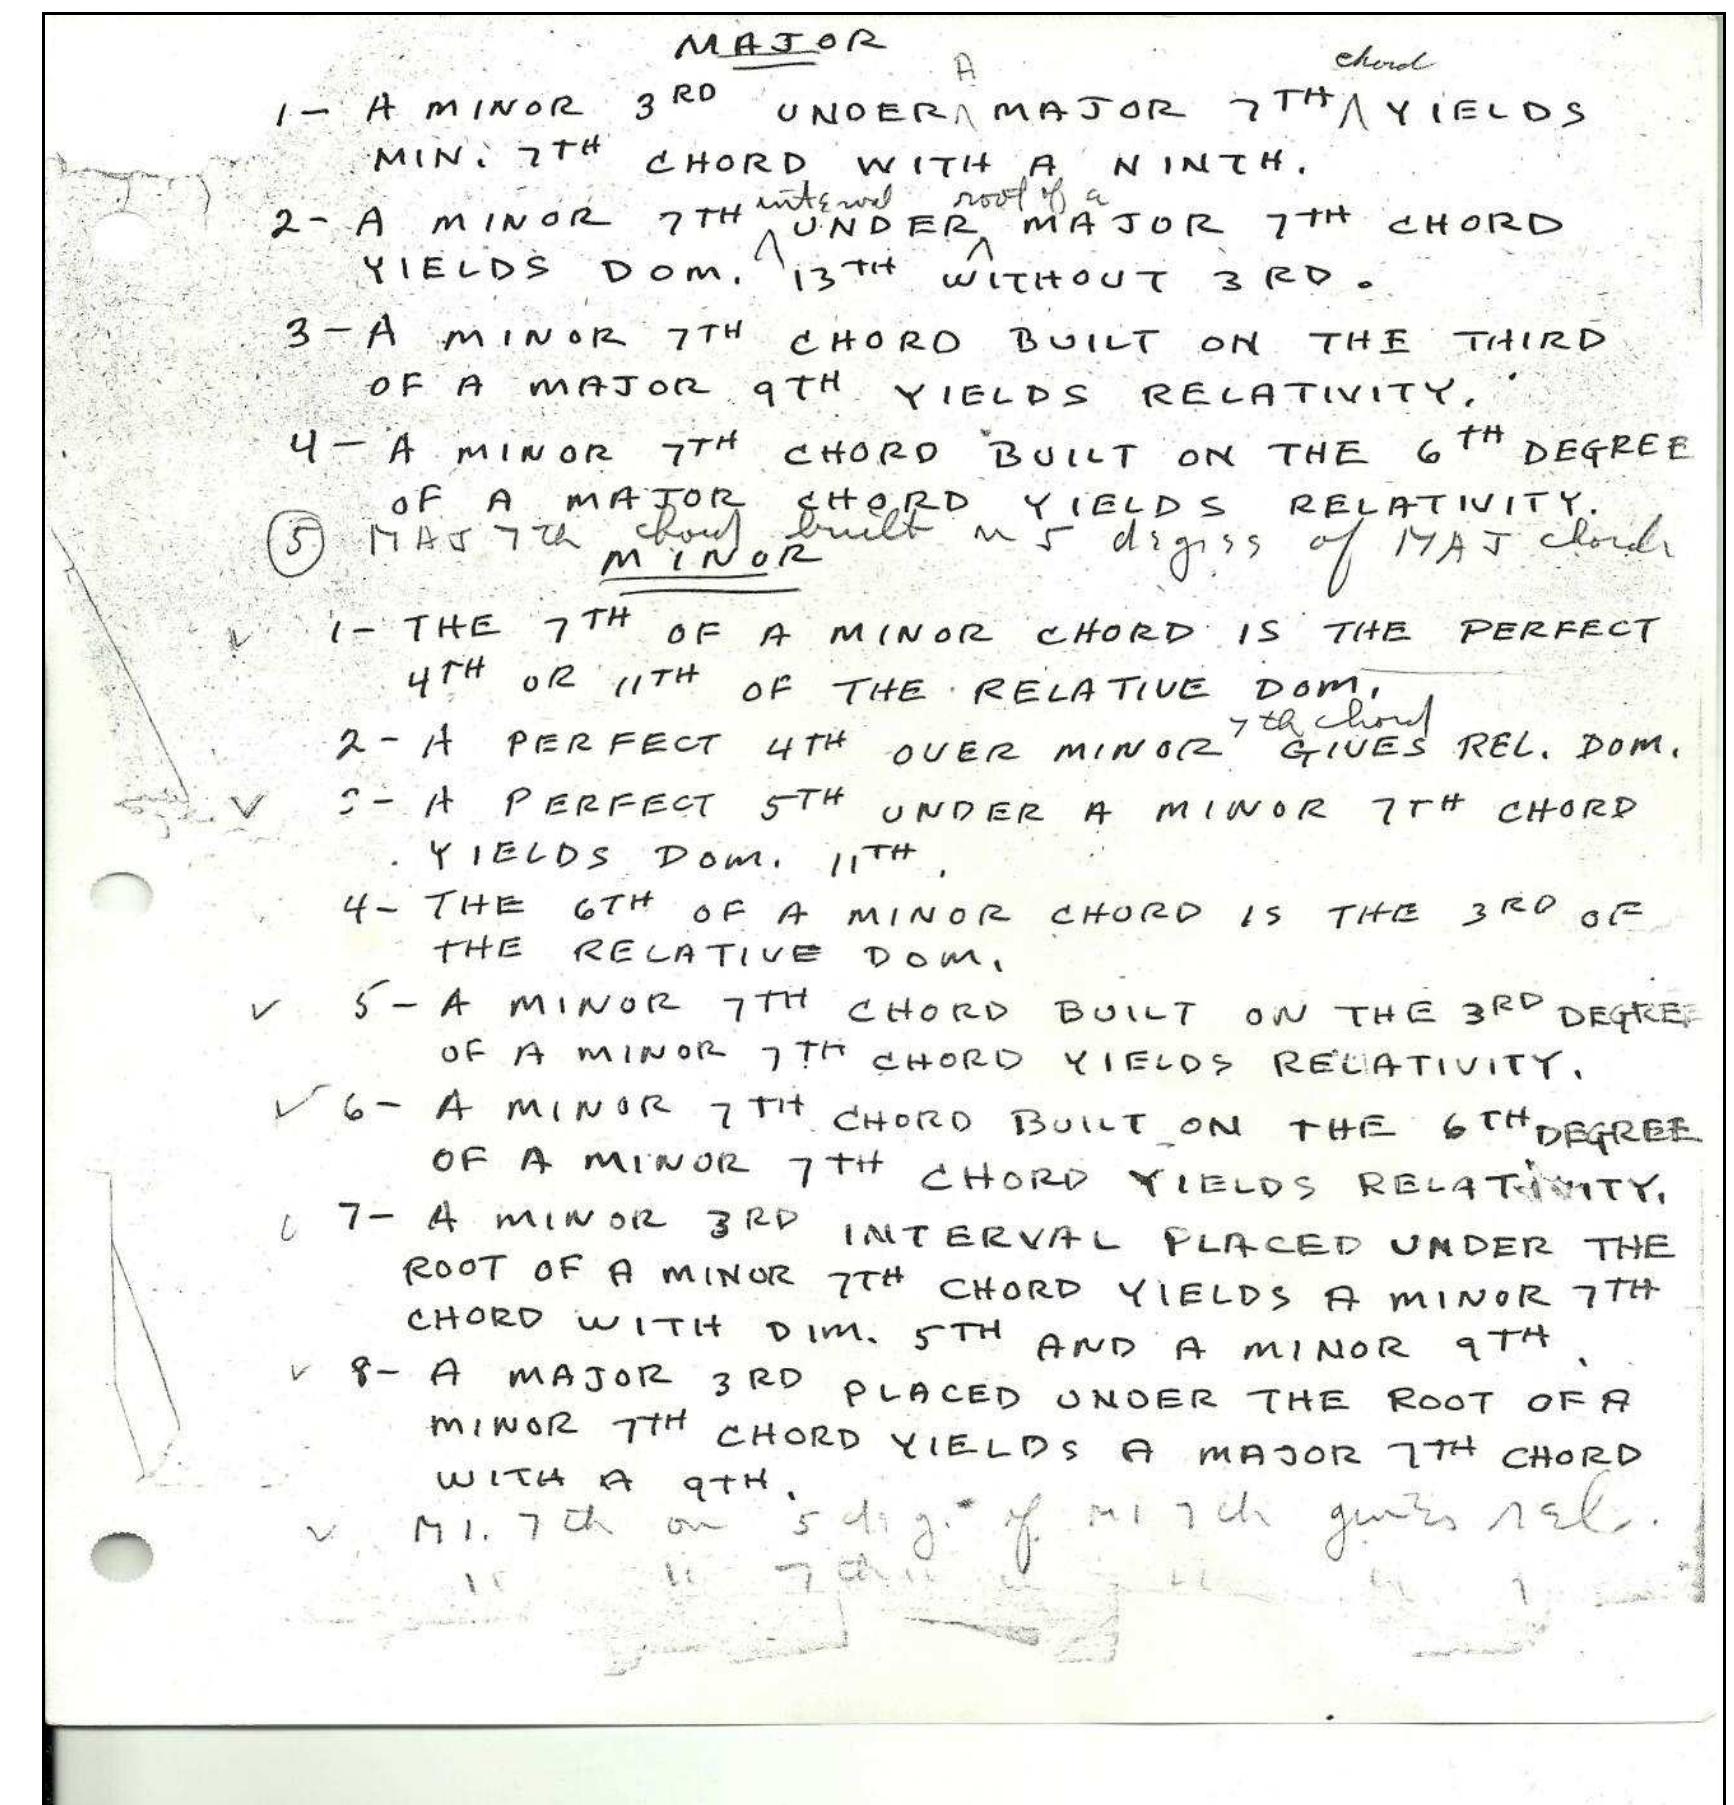 MAJOR
1- A MINOR 3RD UNDER A MAJOR 7TH chord YIELDS
MIN. 7TH CHORD WITH A NINTH.
2- A MINOR 7TH interval UNDER root of a MAJOR 7TH CHORD
YIELDS DOM. 13TH WITHOUT 3RD.
3- A MINOR 7TH CHORD BUILT ON THE THIRD
OF A MAJOR 9TH YIELDS RELATIVITY.
4- A MINOR 7TH CHORD BUILT ON THE 6TH DEGREE
OF A MAJOR CHORD YIELDS RELATIVITY.
5 MAJ 7th chord built 5 of MAJ chords
MINOR
1- THE 7TH OF A MINOR CHORD IS THE PERFECT
4TH OR 11TH OF THE RELATIVE DOM.
2- A PERFECT 4TH OVER MINOR 7th chord GIVES REL. DOM.
3- A PERFECT 5TH UNDER A MINOR 7TH CHORD
YIELDS DOM. 11TH.
4- THE 6TH OF A MINOR CHORD IS THE 3RD OF
THE RELATIVE DOM.
5- A MINOR 7TH CHORD BUILT ON THE 3RD DEGREE
OF A MINOR 7TH CHORD YIELDS RELATIVITY.
6- A MINOR 7TH CHORD BUILT ON THE 6TH DEGREE
OF A MINOR 7TH CHORD YIELDS RELATIVITY.
7- A MINOR 3RD INTERVAL PLACED UNDER THE
ROOT OF A MINOR 7TH CHORD YIELDS A MINOR 7TH
CHORD WITH DIM. 5TH AND A MINOR 9TH.
8- A MAJOR 3RD PLACED UNDER THE ROOT OF A
MINOR 7TH CHORD YIELDS A MAJOR 7TH CHORD
WITH A 9TH.
MI. 7th on 5 deg. of MI 7th gives rel.
" " 7th " " " "